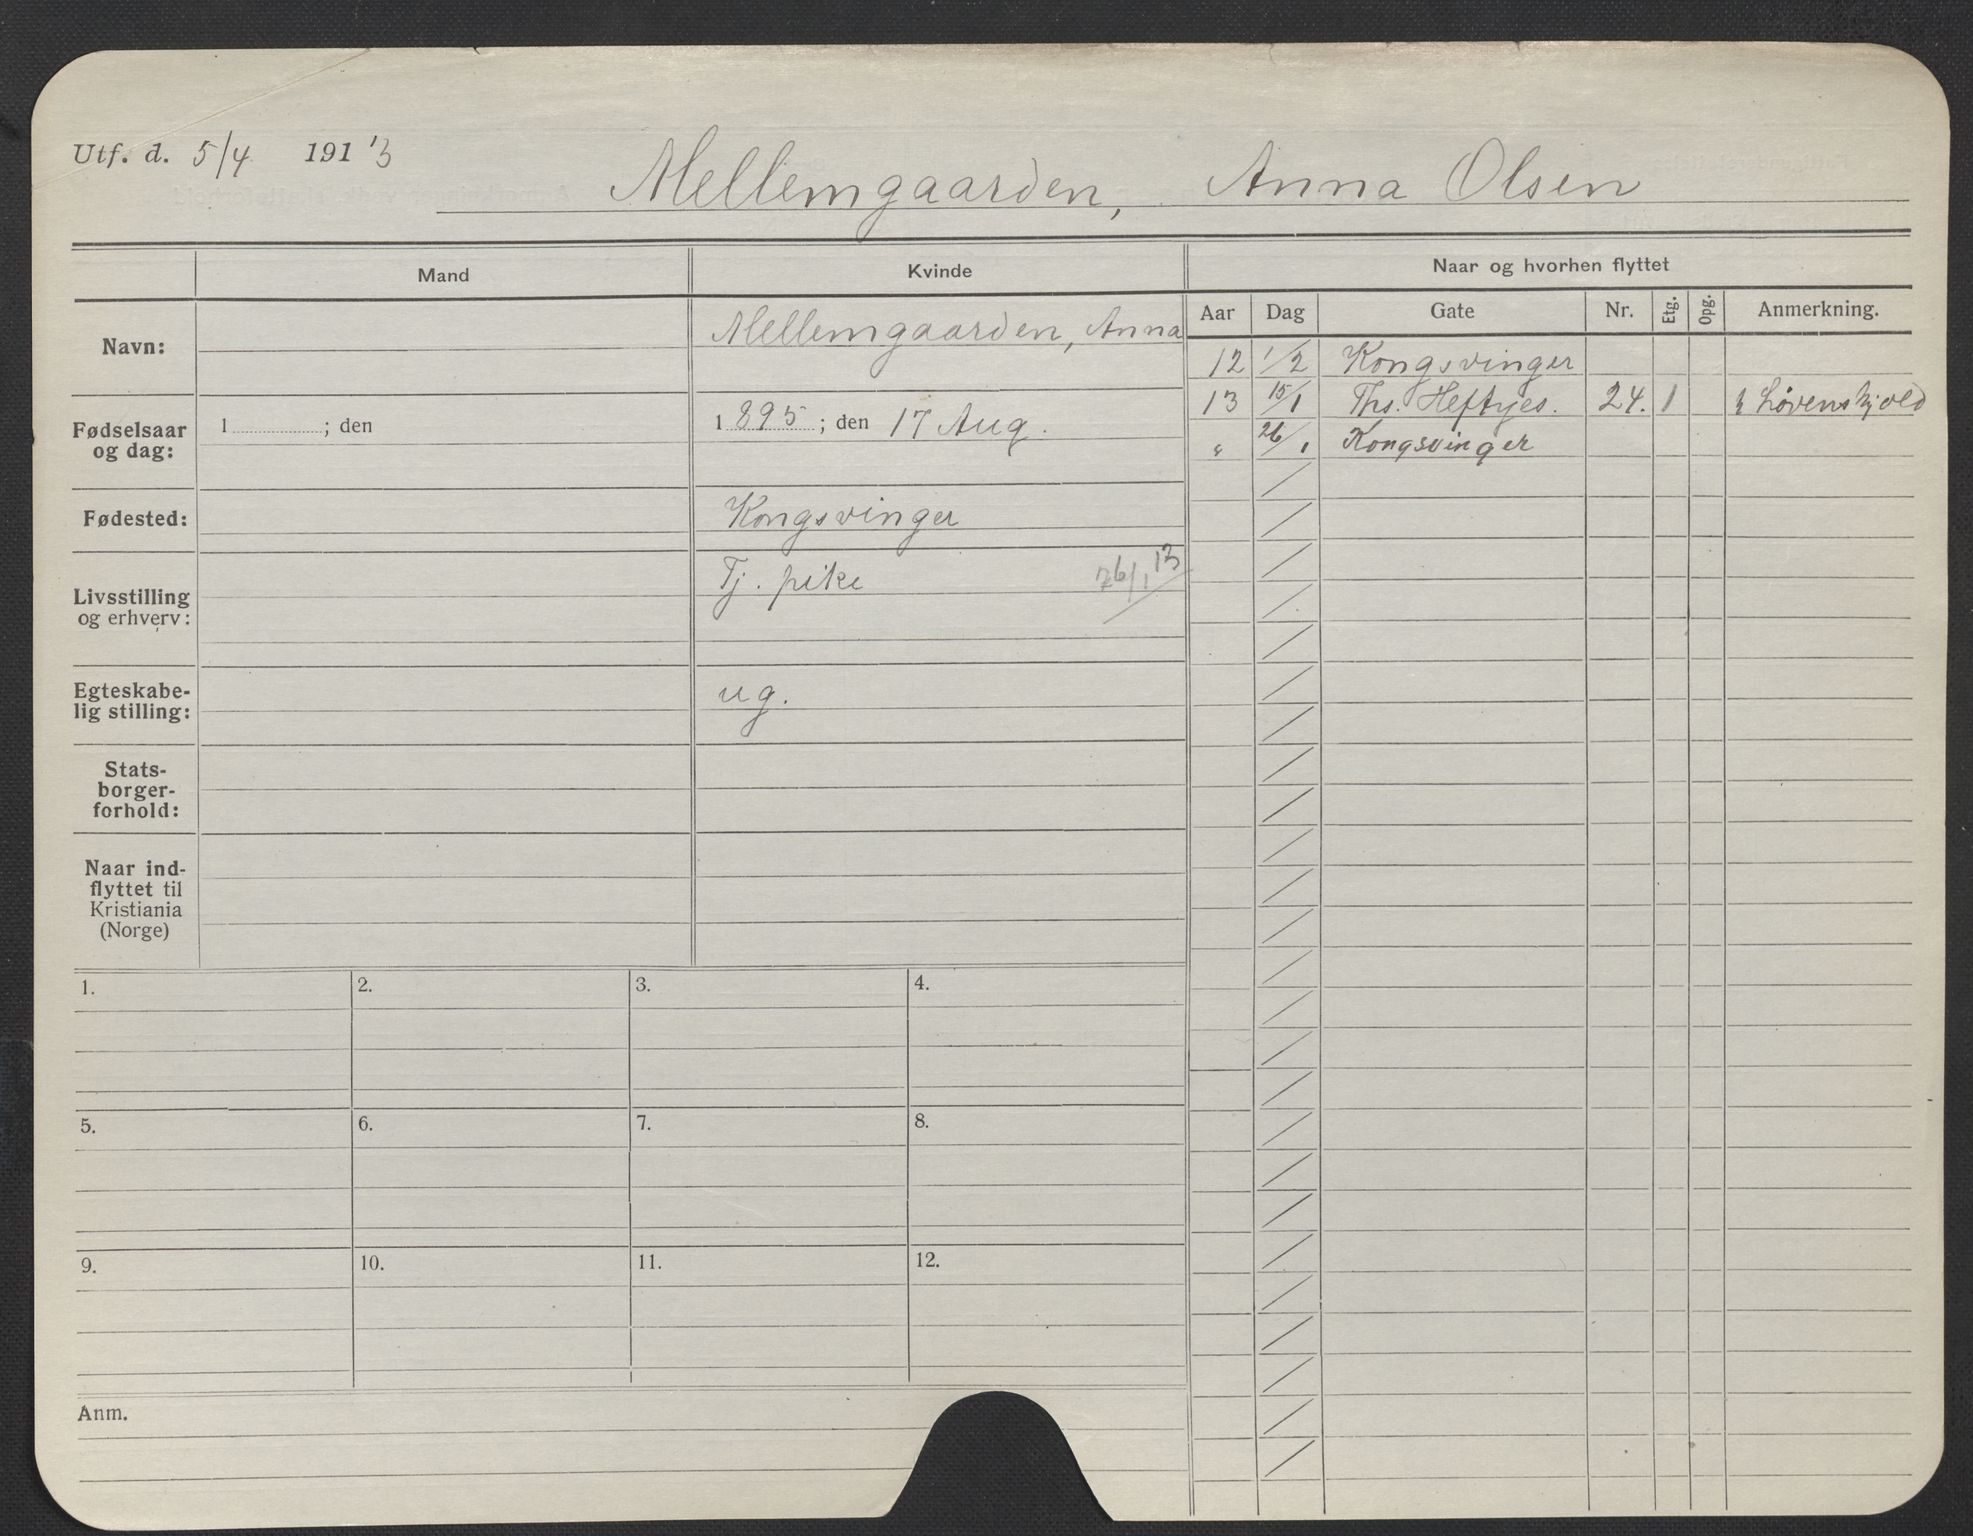 Utf. d. 5/4 191'3
Mellemgaarden, Anna Olsen
Mand
Kvinde
Naar og hvorhen flyttet
Aar Dag Gate Nr. Etg. Opg. Anmerkning.
Navn:
Mellemgaarden, Anna
Fødselsaar
og dag:
1 ; den
1 895 ; den 17 Aug.
Fødested:
Kongsvinger
Livsstilling
og erhverv:
Tj. pike 26/1 13
Egteskabe-
lig stilling:
ug.
Stats-
borger-
forhold:
Naar ind-
flyttet til
Kristiania
(Norge)
12 1/2 Kongsvinger
13 15/1 Ths. Heftyes. 24. 1 Løvenskjold
" 26/1 Kongsvinger
1. 2. 3. 4.
5. 6. 7. 8.
9. 10. 11. 12.
Anm.